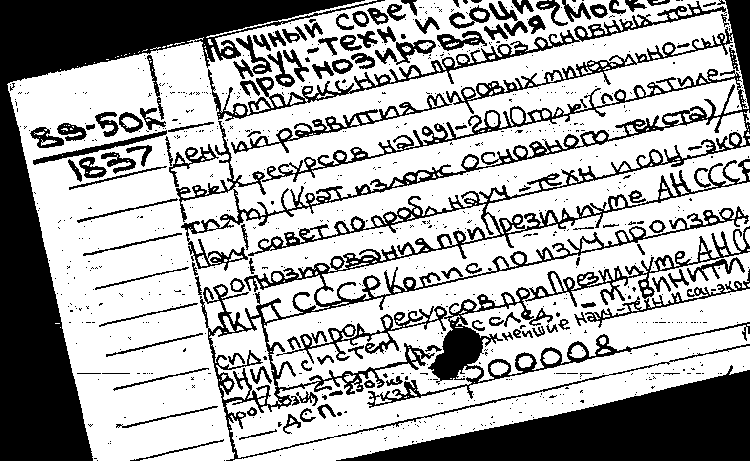 Научный совет
науч.-техн. и социа
прогнозирования (Моск
Комплексный прогноз основных тен-
89-50к
1837
денций развития мировых минерально-сыр
евых ресурсов на 1991-2010 годы (по пятиле-
тиям): (Крат. излож. основного текста) /
Науч. совет по пробл. науч.-техн. и соц.-экон
прогнозирования при Президиуме АН СССР
и ГКНТ СССР, Комис. по изуч. производ.
сил и природ. ресурсов при Президиуме АН СС
ВНИИ систем. исслед. - М.: ВИНИТИ,
-475. - 21см. жнейшие науч.-техн. и соц.-экон
прогнозы). - 230экз.
Экз N 000008
ДСП.